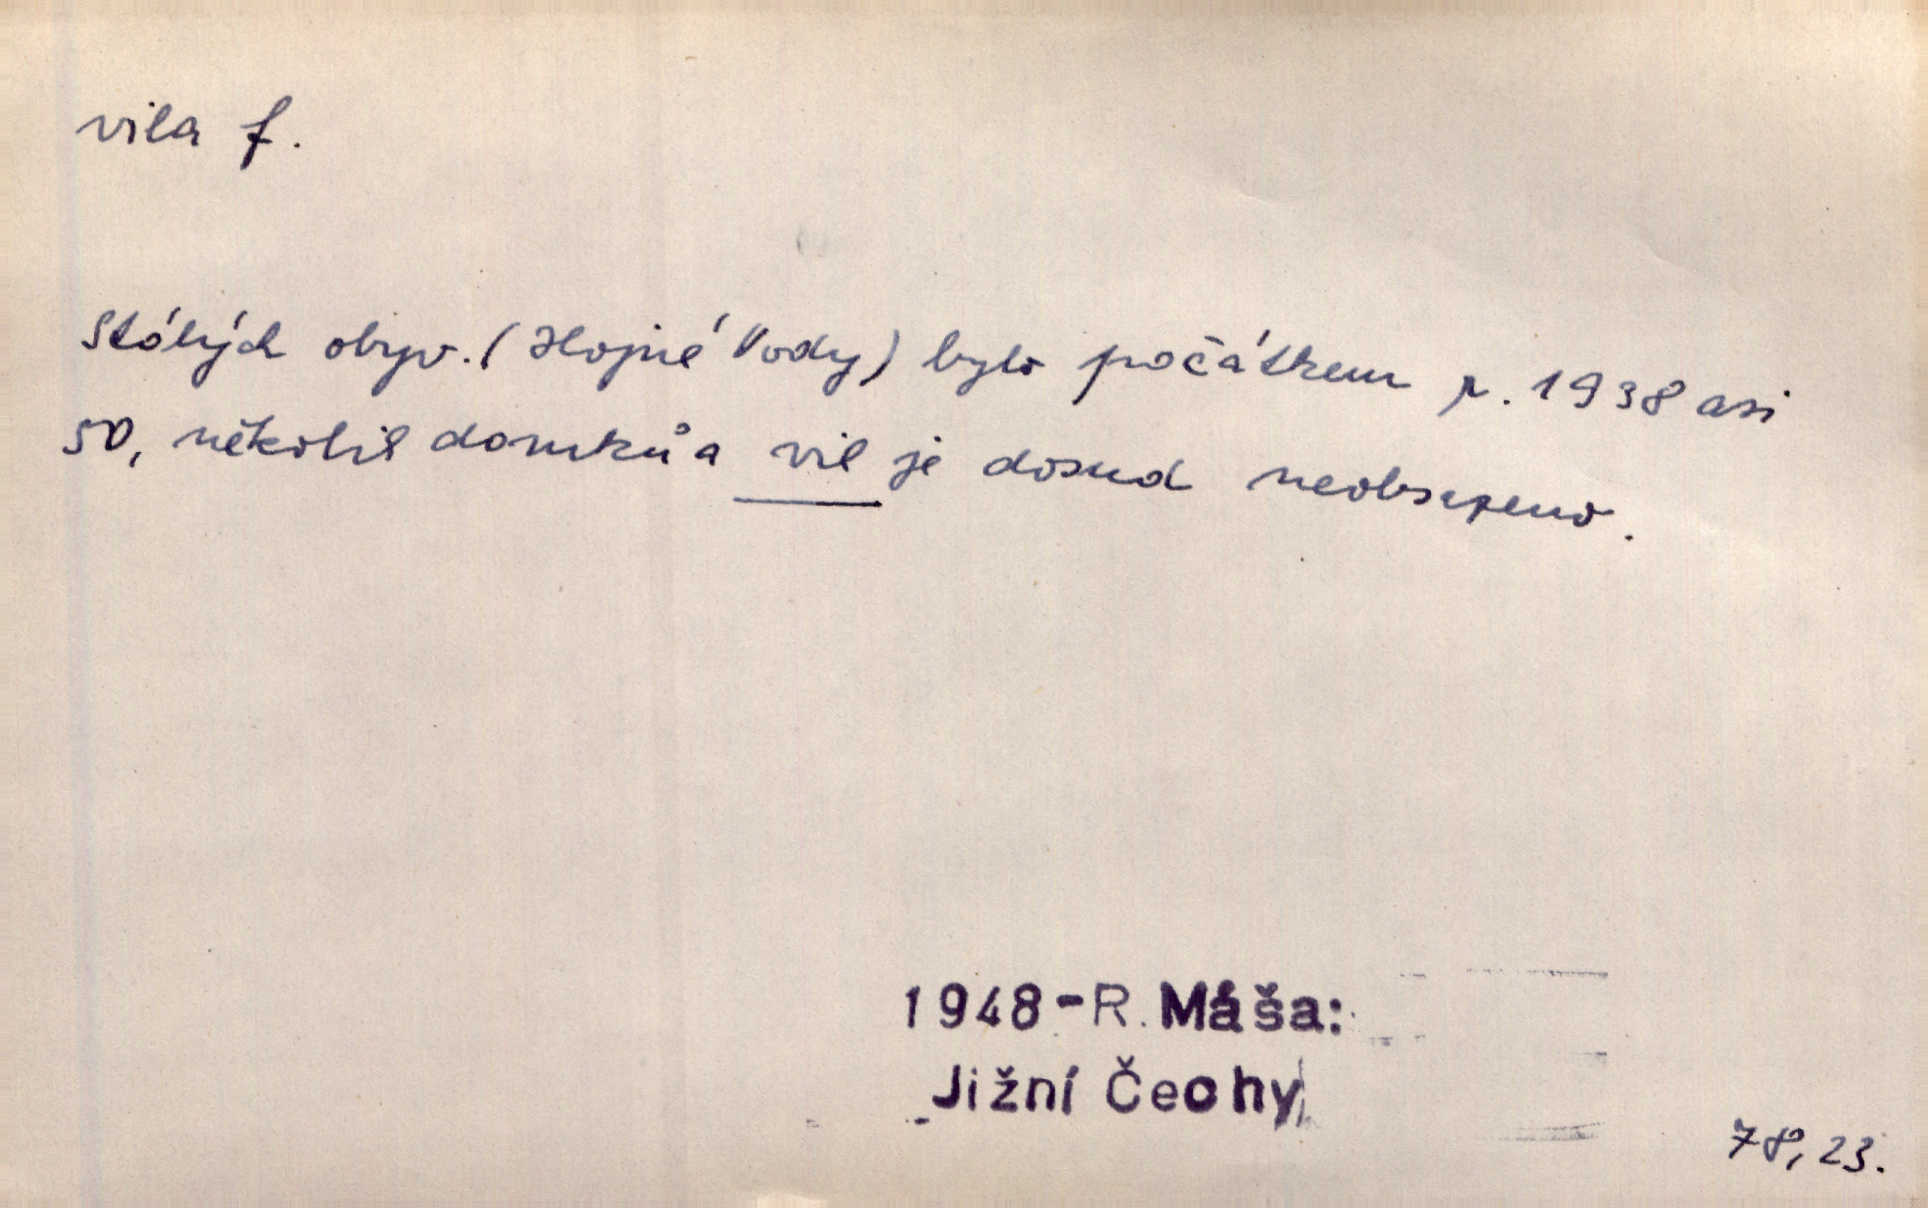 vila f.
Stálých obyv. (Hojné Vody) bylo počátkem r. 1938 asi
50, několik domků a vil je dosud neobsazeno.
1948-R. Máša:
Jižní Čechy
78, 23.